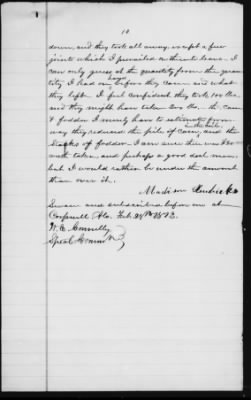 10
down, and they took all away, except a few
joints which I prevailed on them to leave. I
can only guess at the quantity from the quan
tity I had on hand before they came and what
they left. I feel confident they took 100 lbs.
and they might have taken 200 lbs. the Corn
& fodder I merely have to estimate from
way they reduced the pile of Corn, and the
Stacks of fodder. I am sure there was
was taken, and perhaps a good deal more.
but I would rather be under the amount
than over it.
Madison
Sworn and subscribed before me at
Ala. Feb.
W. C. Connelly
Special Commr